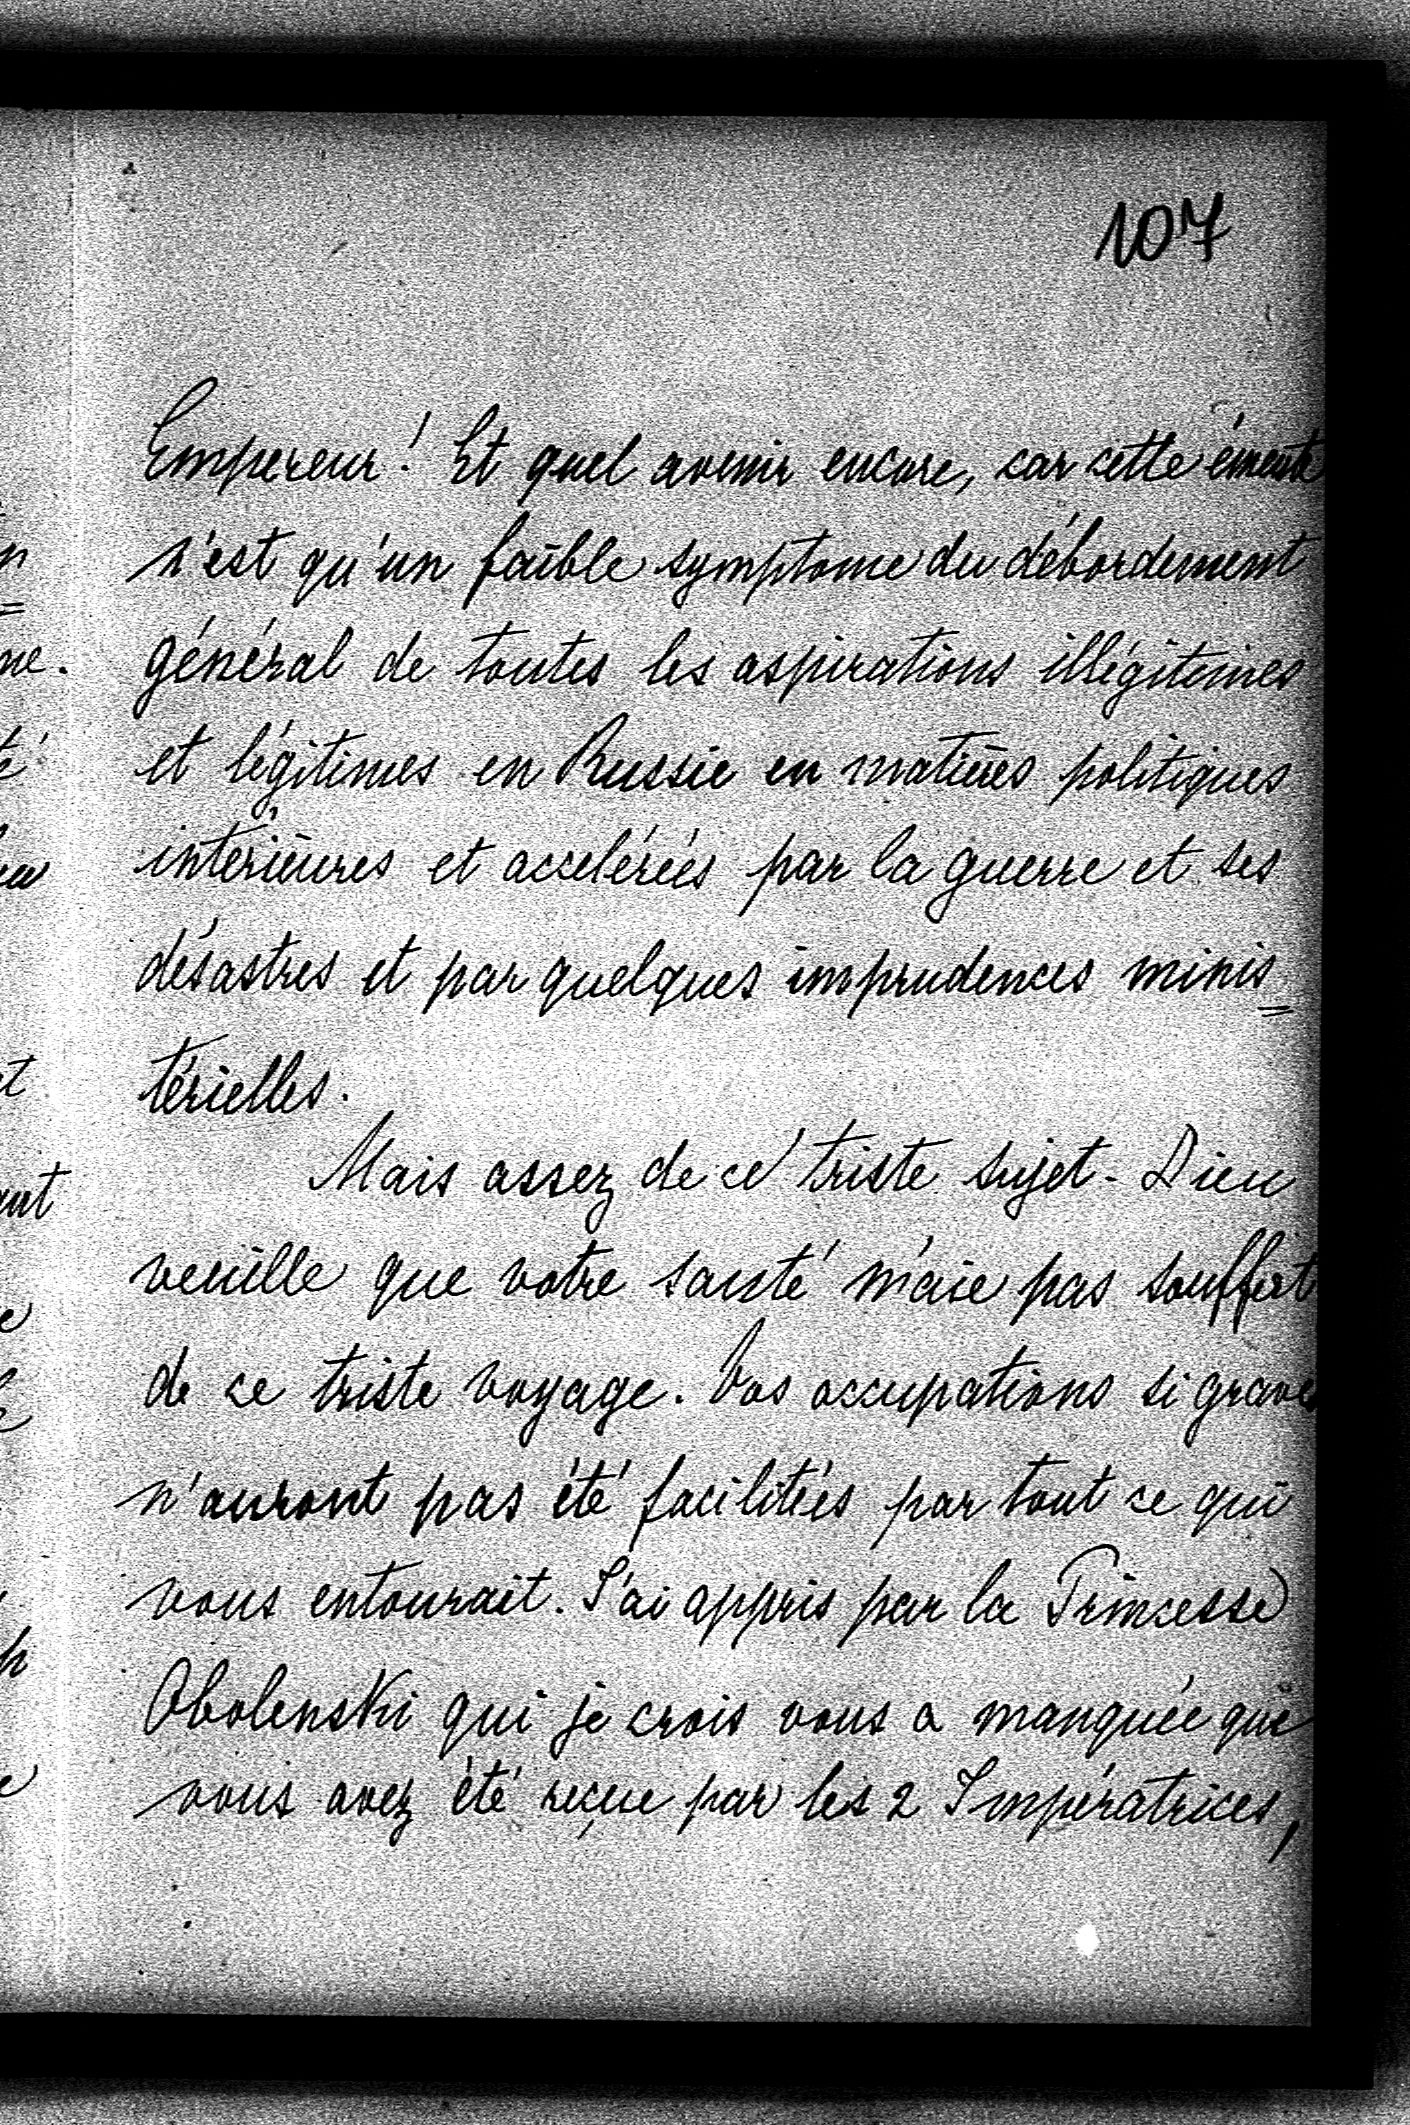 107
Empereur! Et quel avenir encore, car cette émeute
n'est qu'un faible symptome du débordement
général de toutes les aspirations illégitimes
et légitimes en Russie en matières politiques
intérieures et accelérées par la guerre et ses
désastres et par quelques imprudences minis=
térielles.
Mais assez de ce triste sujet - Dieu
veuille que votre santé n'aie pas souffert
de ce triste voyage. Vos occupations si graves
n'auront pas été facilitées par tout ce qui
vous entourait. J'ai appris par la Princesse
Obolenski qui je crois vous a manquée que
vous avez été reçue par les 2 Impératrices,